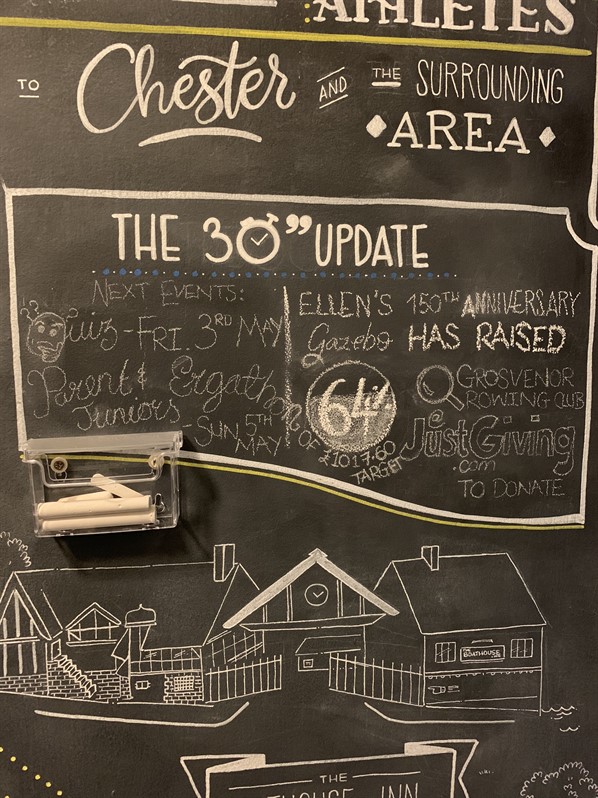 ATHLETES
TO Chester AND THE SURROUNDING
AREA
THE 30" UPDATE
NEXT EVENTS:
Quiz - FRI. 3RD MAY
Parent & Ergathon
Juniors
- SUN 5TH
MAY
ELLEN'S 150TH ANNIVERSARY
Gazebo HAS RAISED
64%
OF £1017.60
TARGET
GROSVENOR
ROWING CLUB
@
JustGiving
.com
TO DONATE
THE
BOATHOUSE
THE
THOUSE INN